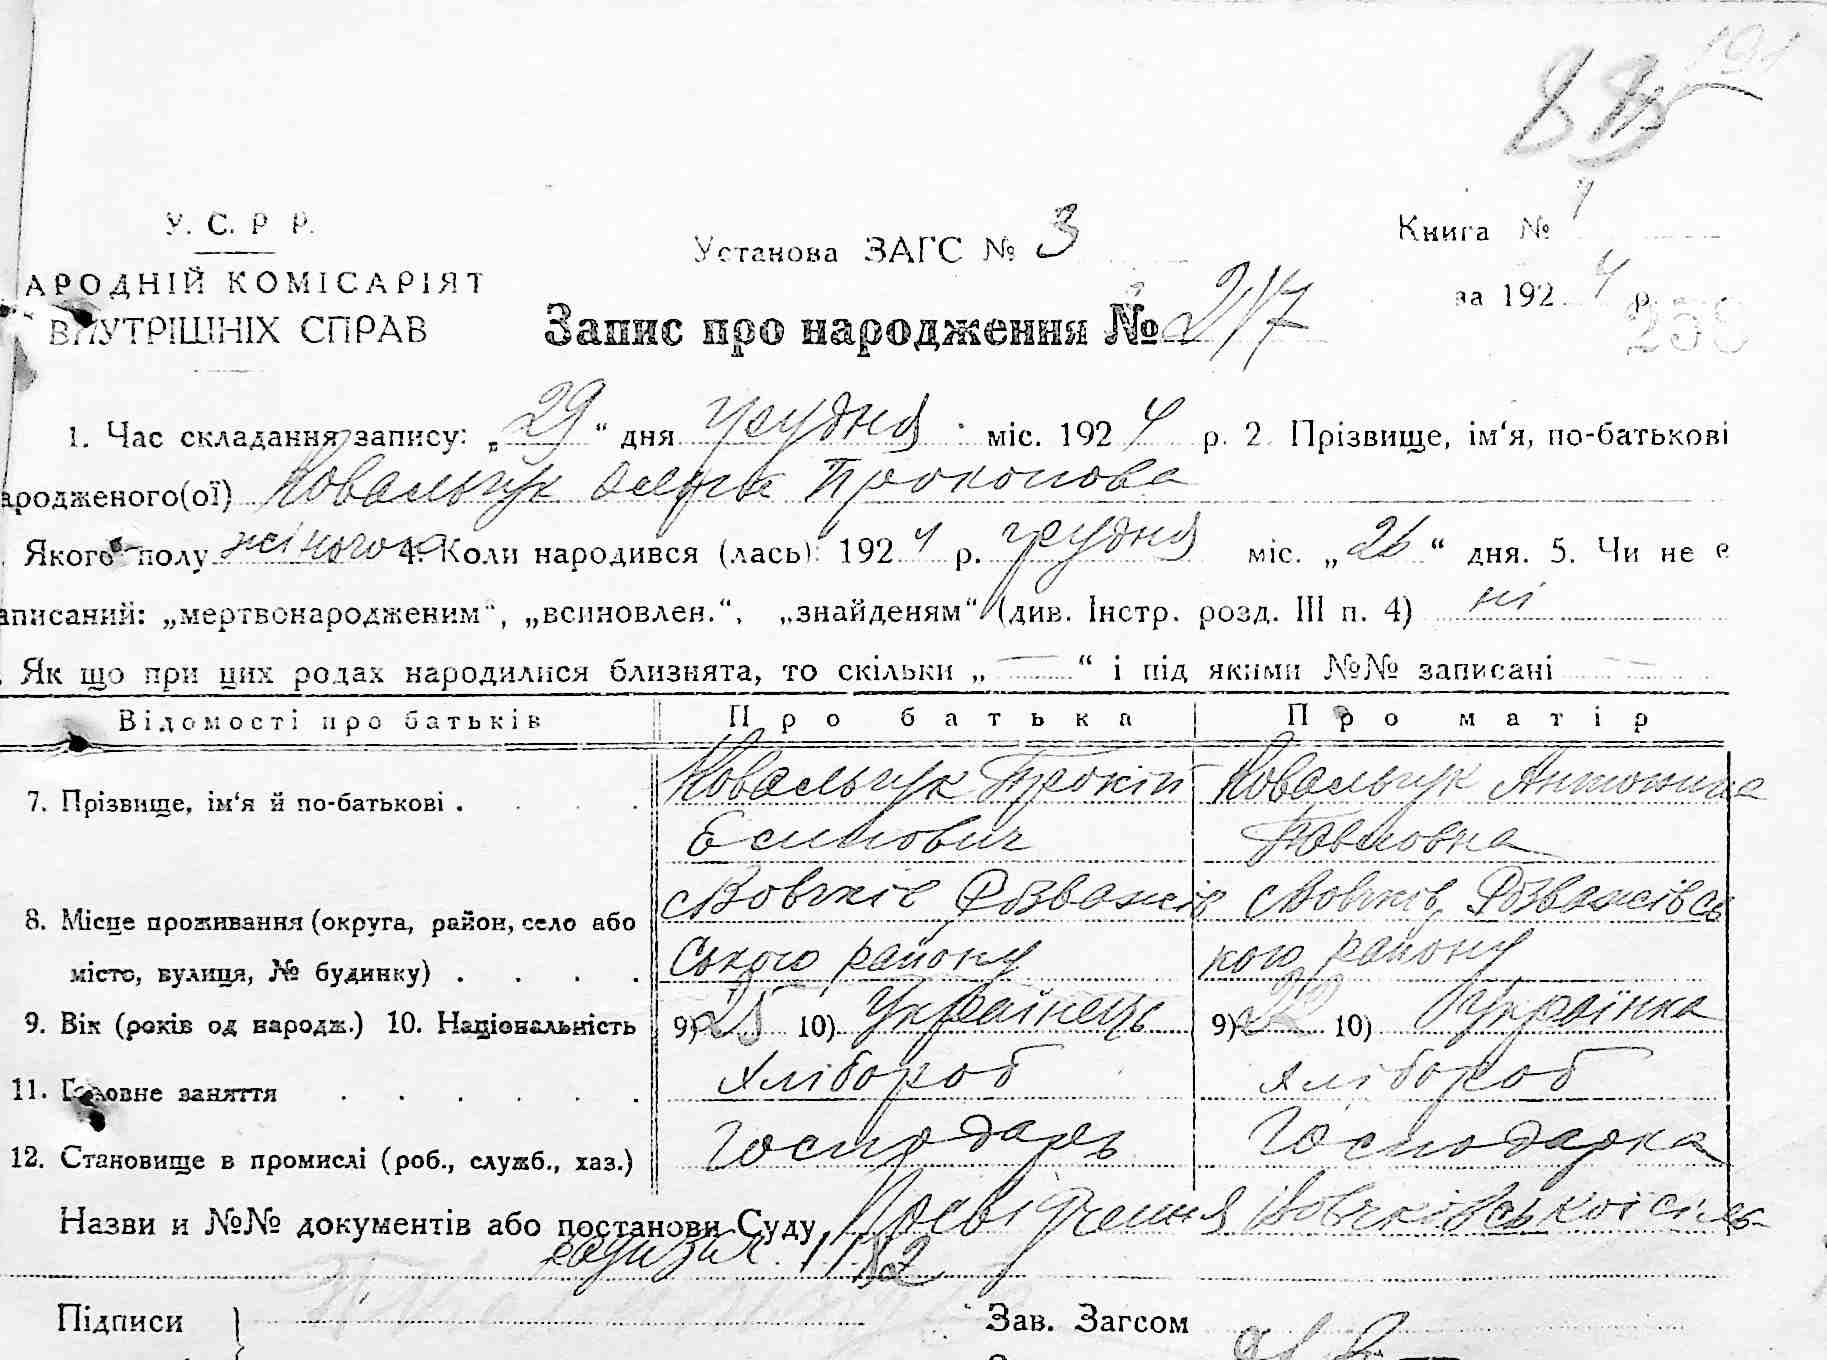 У. С. Р Р.
Установа ЗАГС № 3
Книга №
АРОДНІЙ КОМІСАРІЯТ
за 192 4 р.
ВНУТРІШНІХ СПРАВ
Запис про народження № 217
1. Час складання запису: „ 29 “ дня грудня міс. 192 4 р. 2. Прізвище, ім‘я, по-батькові
ародженого(ої) Ковальчук Ольга Прокопова
Якого полу жіночого 4. Коли народився (лась): 192 4 р. грудня міс. „ 26 “ дня. 5. Чи не є
аписаний: „мертвонародженим“, „всиновлен.“, „знайденям“ (див. Інстр. розд. III п. 4) ні
Як що при цих родах народилися близнята, то скільки „ — “ і під якими №№ записані —
Відомості про батьків Про батька Про матір
7. Прізвище, ім‘я й по-батькові . Ковальчук Прокіп Ковальчук Антонина
Есипович Павловна
8. Місце проживання (округа, район, село або с Вовчків Розважів с Вовчків, Розважівсь
місто, вулиця, № будинку) . ського району кого району
9. Вік (років од народж.) 10. Національність 9) 25 10) Українець 9) 22 10) Українка
11. Головне заняття Хлібороб Хлібороб
12. Становище в промислі (роб., служб., хаз.) Господарь Господарка
Назви и №№ документів або постанови Суду Посвідчення Вовчківської сіль-
Підписи
Зав. Загсом